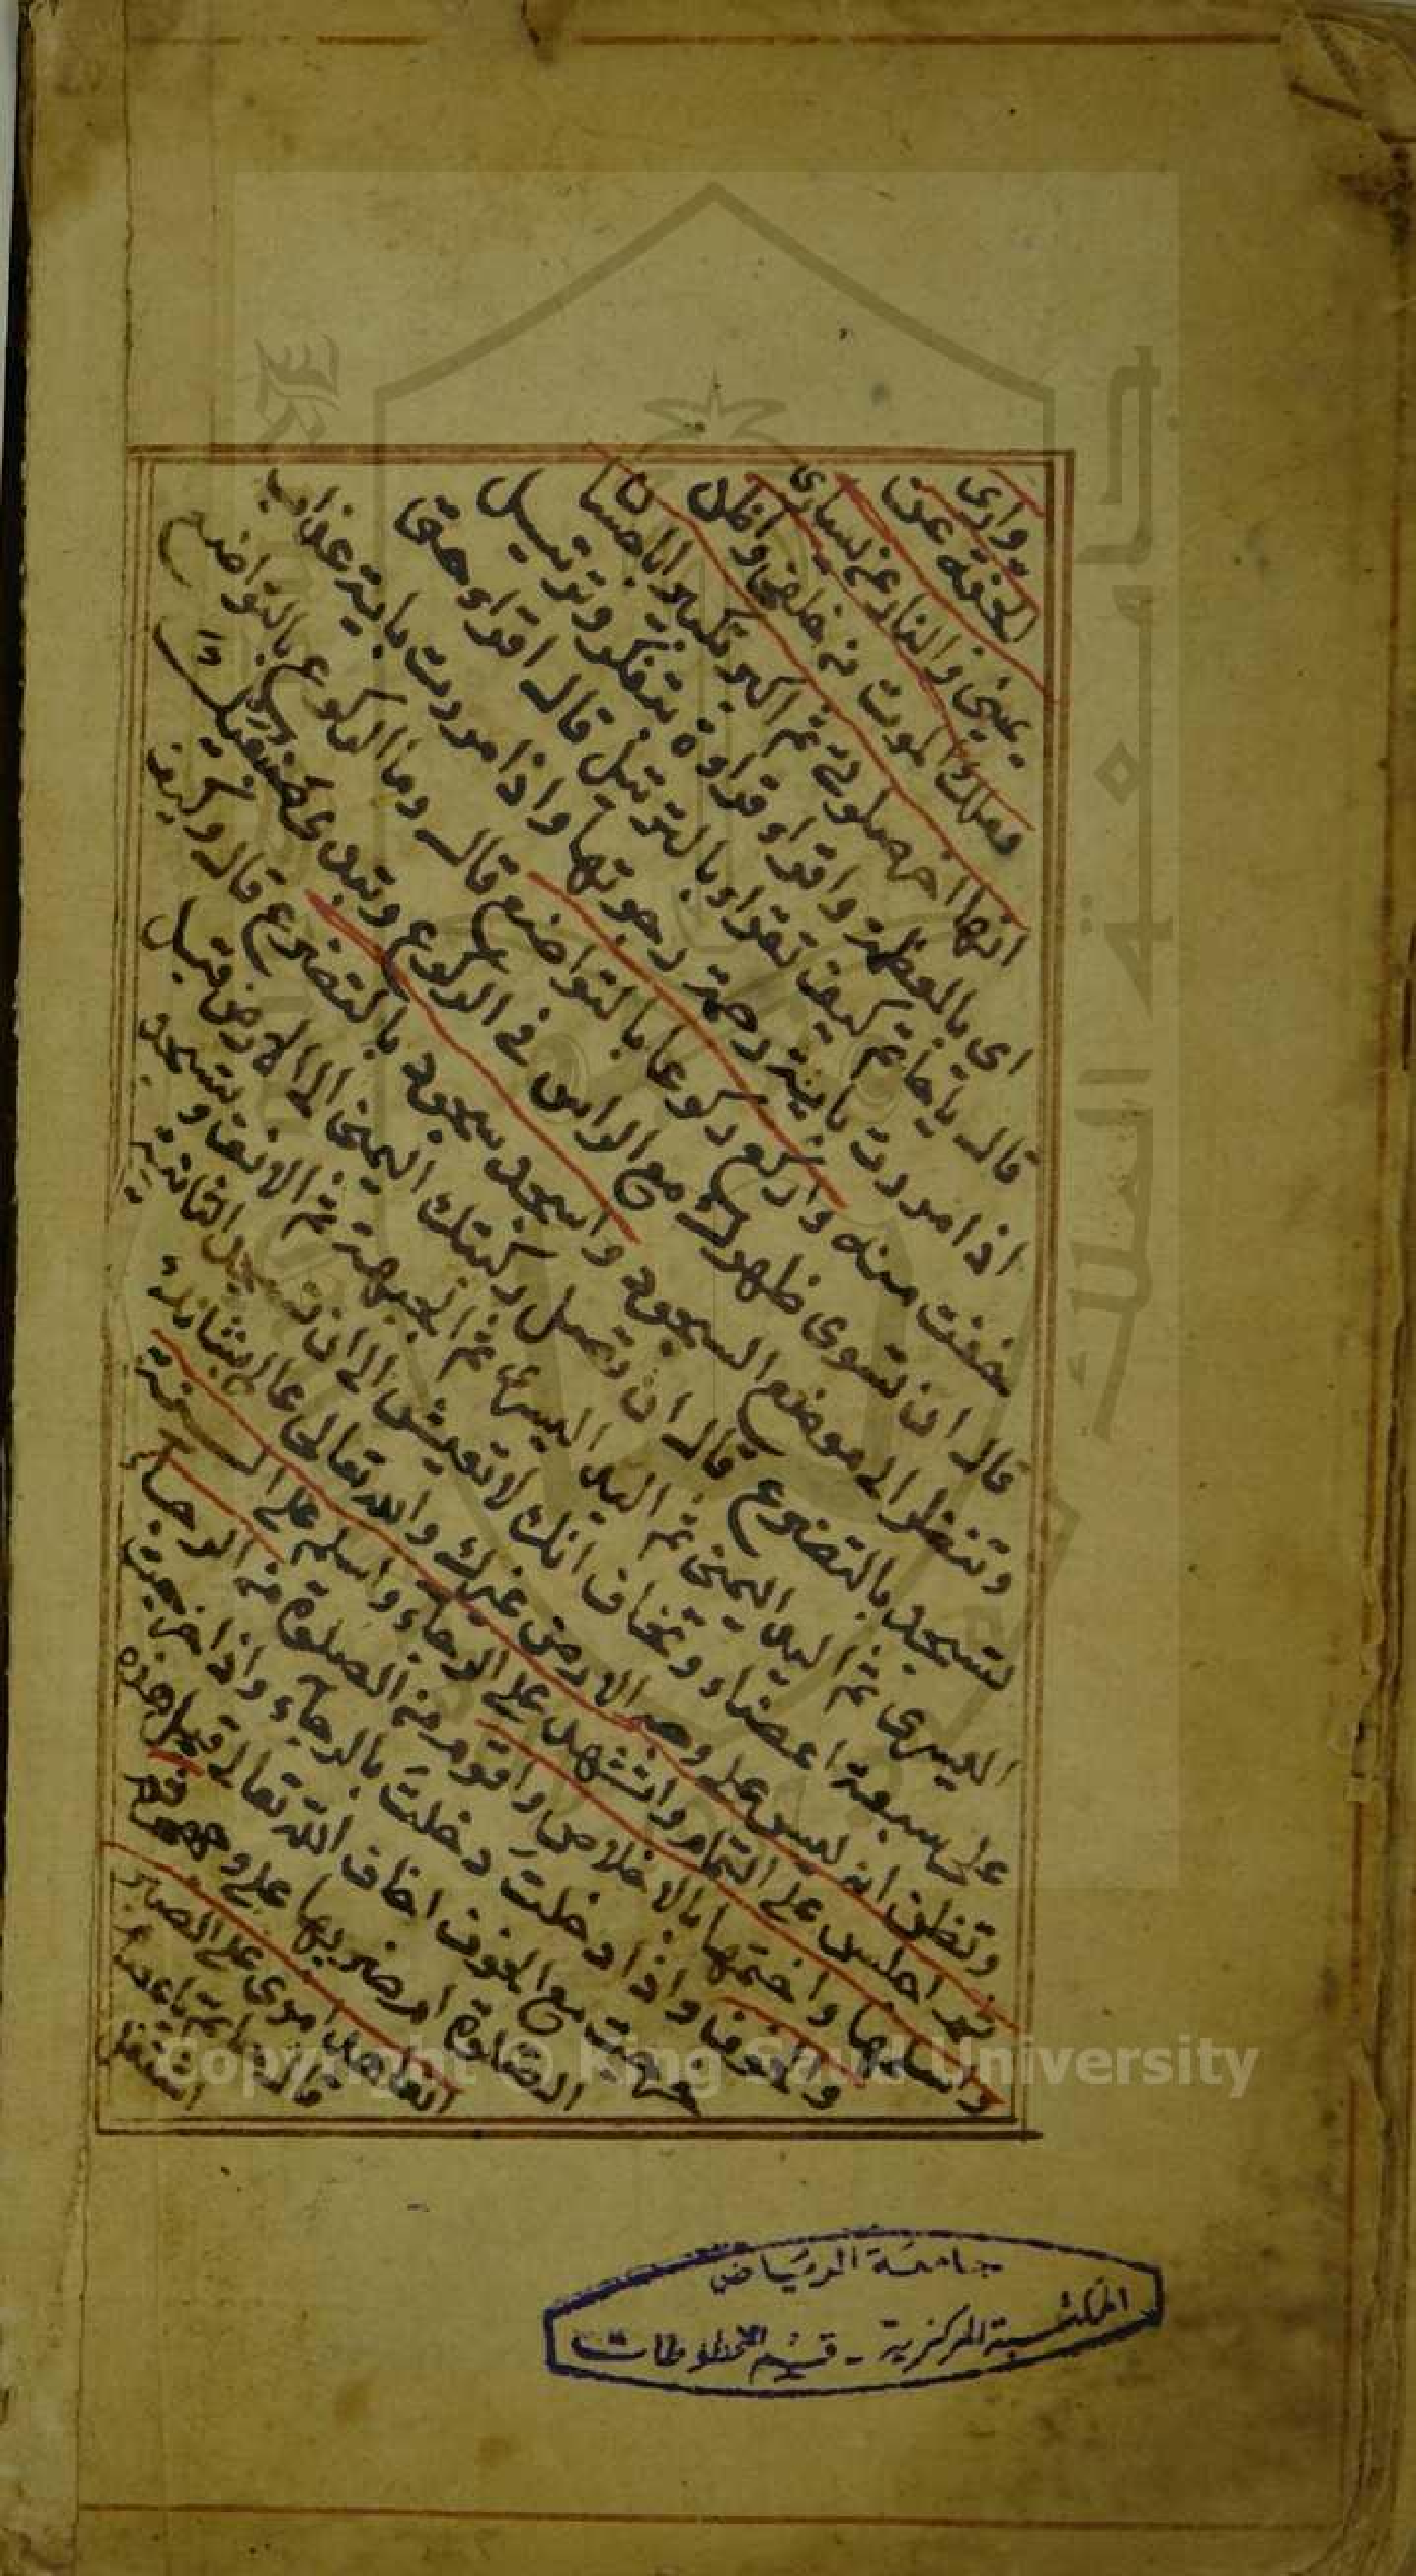 وارى
الجنة عن
يمينى والنار عن يسارى
وملك الموت من خلفى واظن
انها اخر صلوتى ثم اكبر تكبيرا باحسان
اى بالعظمة واقراء قراءة بتفكر وترتيل
قال يا حاتم كيف تقراء بالترتيل قال اقراء حتى
اذا مررت باية رحمة رجوتها واذا مررت باية عذاب
خفت منه واركع ركوعا بالتواضع قال وما الركوع بالتواضع
قال ان تسوى ظهرك مع الراس فى الركوع وتبدى
وتنظر الى موضع السجود واسجد سجود بالتضرع قال وكيف
تسجد بالتضرع قال ان تحمل ركبتك اليمنى الى الارض قبل
اليسرى ثم اليد اليمنى ثم اليد اليسرى ثم الجبهة ثم الانف وتسجد
على سبعة اعضاء وتخاف انك لا تعيش الى ان تسجد الثانية
وتظن انه ليس على وجه الارض غيرك والله تعالى عالم بشانك
ثم اجلس على التمام واتشهد على الرجاء واسلم على السنة
واسلمها واختمها بالاخلاص واقوم من الصلوة من الرجاء
والخوف واذا دخلت دخلت بالرجاء واذا خرجت
خرجت مع الخوف اخاف الله تعالى قبل هذه
الصلوة ام ضربها على وجهى ثم
اتعاهد امرى على الصبر
قال يا حاتم
استغفر
جامعة الرياض
المكتبة المركزية - قسم المخطوطات
Copyright © King Saud University
جامعة الملك